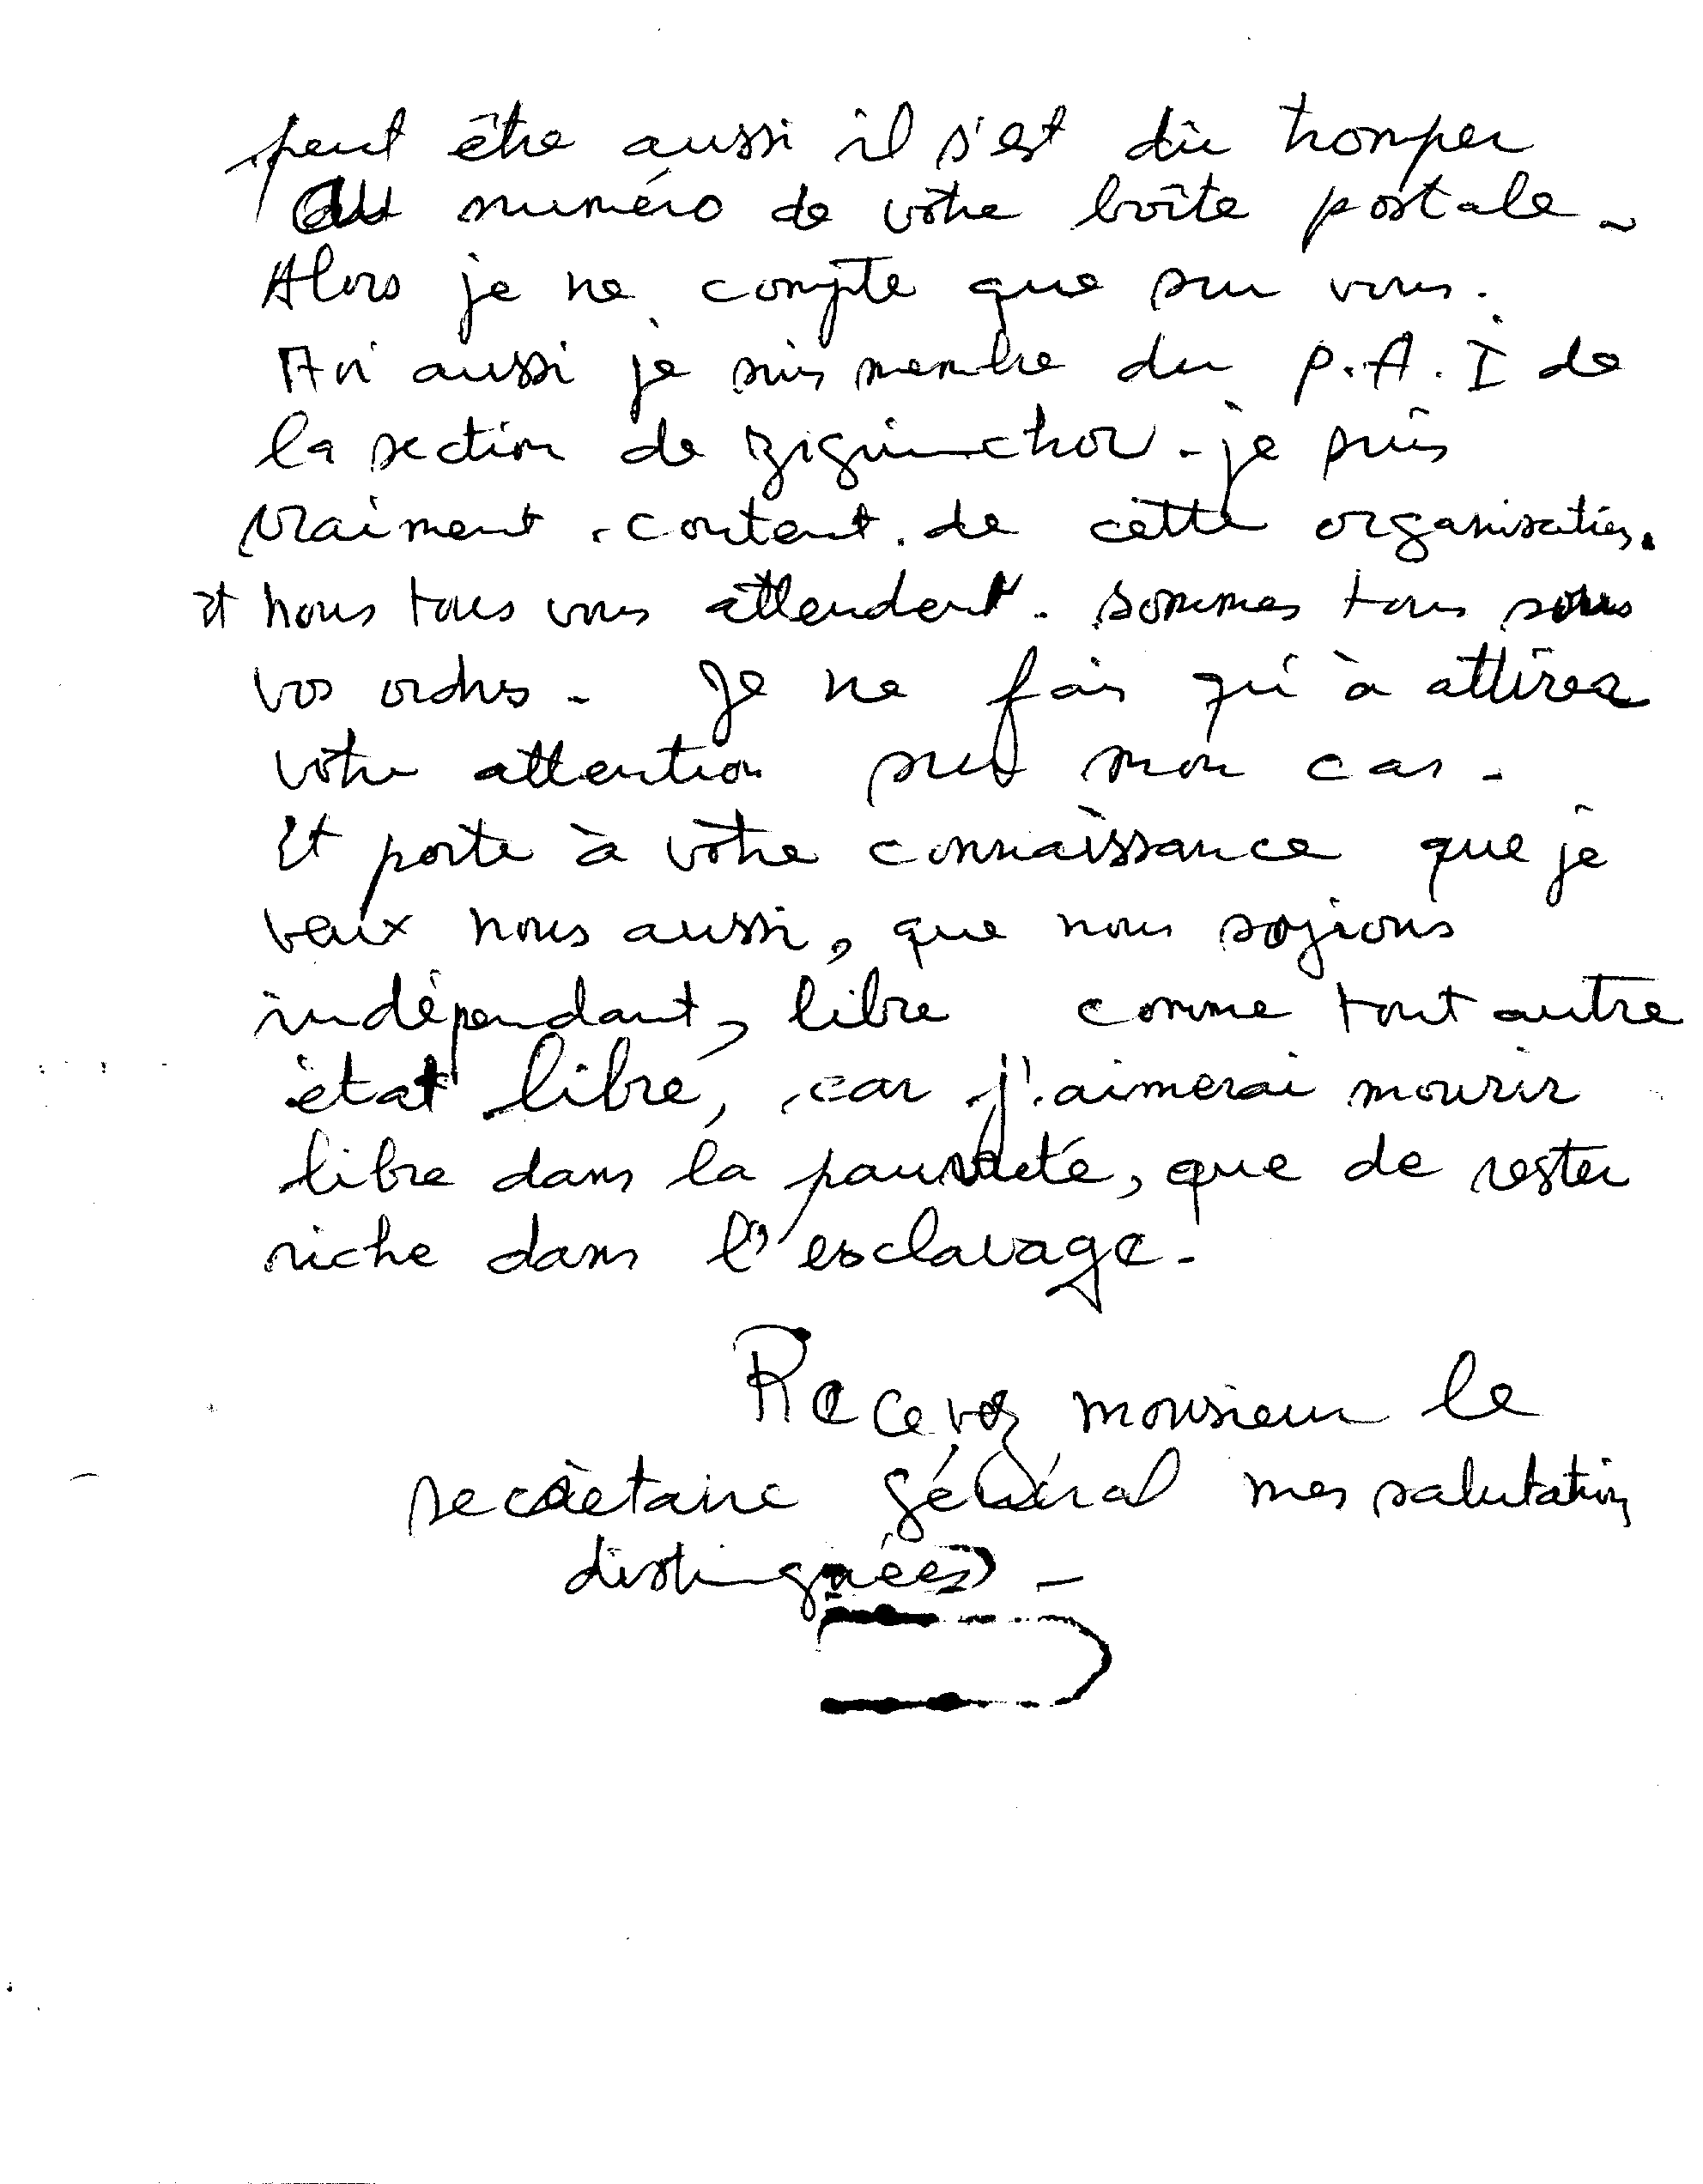 peut être aussi il s'est dû tromper
au numéro de vôtre boîte postale -
Alors je ne compte que sur vous.
Moi aussi je suis membre du P.A.I de
la section de Ziguinchor - je suis
vraiment content de cette organisation.
et nous tous vous attendent - sommes tous sous
vos ordres - Je ne fais qu'à attirer
vôtre attention sur mon cas -
Et porte à vôtre connaissance que je
veux nous aussi, que nous soyions
indépendant, libre comme tout autre
état libre, car j'aimerai mourir
libre dans la pauvreté, que de rester
riche dans l'esclavage -
Recevez monsieur le
secrétaire général mes salutations
distinguées -